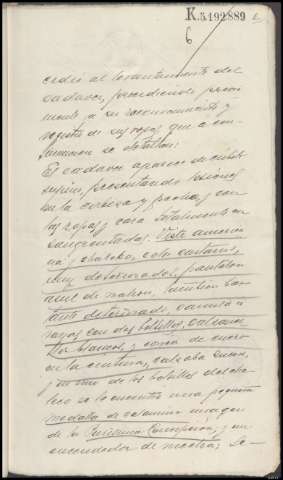 K.5492889
6
cedió al levantamiento del
cadaver, precediendose previa
mente a su reconocimiento y
registro de sus ropas que a con
tinuacion se detallan:
El cadaver aparece decubito
supino, presentando lesiones
en la cabeza y pecho, con
las ropas y cara totalmente en
sangrentadas. Viste america
na y chaleco, color castaño,
muy deteriorados, pantalon
azul de mahon, tambien bas
tante deteriorado, camisa a
rayas con dos bolsillos, calzonci
llos blancos, y correa de cuero
en la cintura, calzaba
y en uno de los bolsillos del chaleco
se le encuentra una pequeña
medalla de aluminio imagen
de la Purisima Concepción, y un
encendedor de mecha; Se-